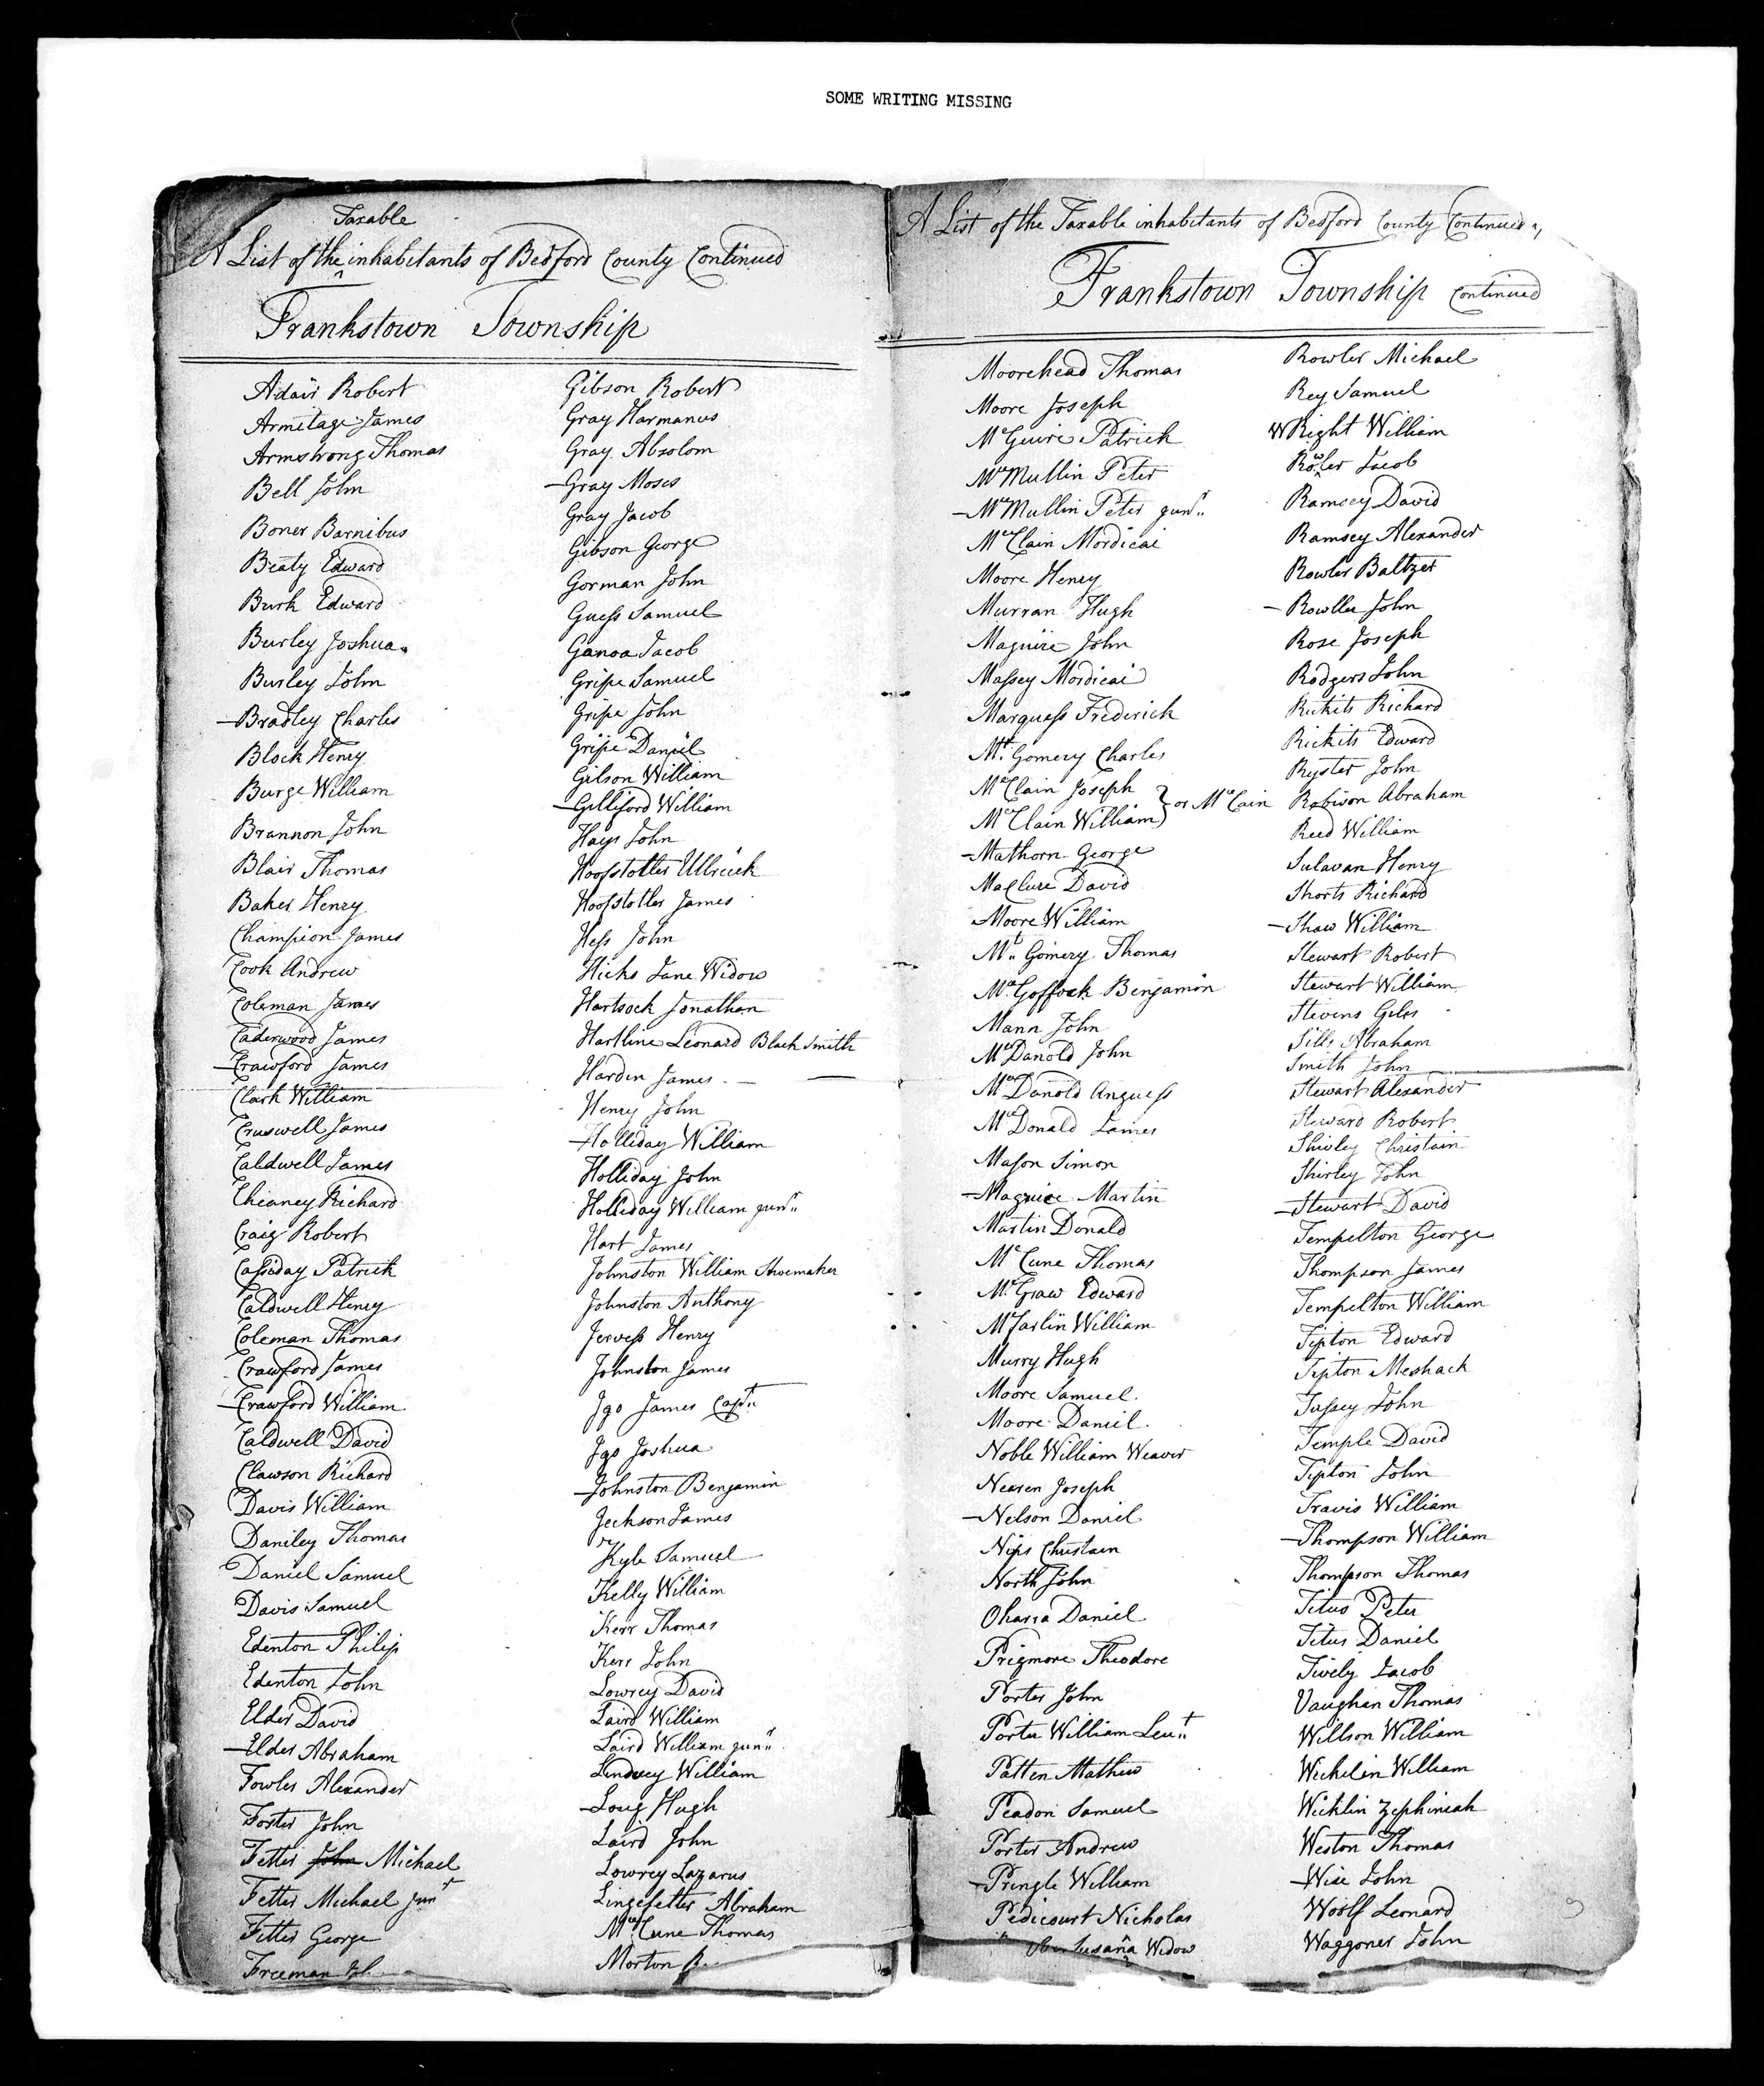 SOME WRITING MISSING
Taxable
A List of the ^ inhabitants of Bedford County Continued
Frankstown Township
Adair Robert
Armitage James
Armstrong Thomas
Bell John
Boner Barnibus
Beaty Edward
Burk Edward
Burley Joshua
Burley John
—Bradley Charles
Block Henry
Burge William
Brannon John
Blair Thomas
Baker Henry
Champion James
Cook Andrew
Coleman James
Caderwood James
—Crawford James
Clark William
Cruswell James
Caldwell James
Cheaney Richard
Craig Robert
Cassiday Patrick
Caldwell Henry
Coleman Thomas
Crawford James
—Crawford William
Caldwell David
Clawson Richard
Davis William
Daniley Thomas
Daniel Samuel
Davis Samuel
Edenton Philip
Edenton John
Elder David
—Elder Abraham
Fowler Alexander
Foster John
Fetter John Michael
Fetter Michael junr
Fetter George
Freeman
Gibson Robert
Gray Harmanus
Gray Absolom
—Gray Moses
Gray Jacob
Gibson George
Gorman John
Guess Samuel
Ganoa Jacob
Gripe Samuel
Gripe John
Gripe Daniel
Gilson William
—Gilliford William
Hays John
Hoofstotler Ullrick
Hoofstotler James
Hess John
Hicks Jane Widow
Hartsock Jonathan
Hartline Leonard Black Smith
Harden James — —
Henry John
—Holliday William
Holliday John
Holliday William junr
Hart James
Johnston William Shoemaker
Johnston Anthony
Jervess Henry
Johnston James
Jgo James Capt
Jgo Joshua
—Johnston Benjamin
Jeckson James
Kyle Samuel
Kelly William
Kerr Thomas
Kerr John
Lowrey David
Laird William
Laird William junr
Lindsey William
—Loug Hugh
Laird John
Lowrey Lazarus
Lingefelter Abraham
McCune Thomas
Morton
A List of the Taxable inhabitants of Bedford County Continued
Frankstown Township Continued
Moorehead Thomas
Moore Joseph
McGuire Patrick
McMullin Peter
—McMullin Peter junr
McClain Mordicai
Moore Henry
Murran Hugh
Maguire John
Massey Mordicai
Marquess Frederick
Mt. Gomery Charles
McClain Joseph
McClain William } or McCain
—Mathorn George
Maclure David
Moore William
Mt. Gomery Thomas
McGoffock Benjamin
Mann John
McDanold John
McDanold Anguess
McDonald James
Mason Simon
—Maguire Martin
Martin Donald
McCune Thomas
McGraw Edward
McFarlin William
Murry Hugh
Moore Samuel
Moore Daniel
Noble William Weaver
Nearen Joseph
—Nelson Daniel
Nips Christain
North John
Oharra Daniel
Prigmore Theodore
Porter John
Porter William Leut
Patten Mathew
Peadon Samuel
Porter Andrew
—Pringle William
Pedicourt Nicholas
Susana Widow
Rowler Michael
Rey Samuel
WRight William
Rowler Jacob
Ramsey David
Ramsey Alexander
Rowler Baltzer
—Rowller John
Rose Joseph
Rodgers John
Rickits Richard
Rickits Edward
Ryster John
Robison Abraham
Reed William
Sulavan Henry
Shorts Richard
—Shaw William
Stewart Robert
Stewart William
Stevens Giles
Sills Abraham
Smith John
Stewart Alexander
Steward Robert
Shirley Christain
Shirley John
—Stewart David
Tempelton George
Thompson James
Tempelton William
Tipton Edward
Tipton Meshack
Tussey John
Temple David
Tipton John
Travis William
—Thompson William
Thompson Thomas
Titus Peter
Titus Daniel
Tively Jacob
Vaughan Thomas
Willson William
Wickelin William
Wicklin Zephiniah
Weston Thomas
—Wise John
Woolf Leonard
Waggoner John